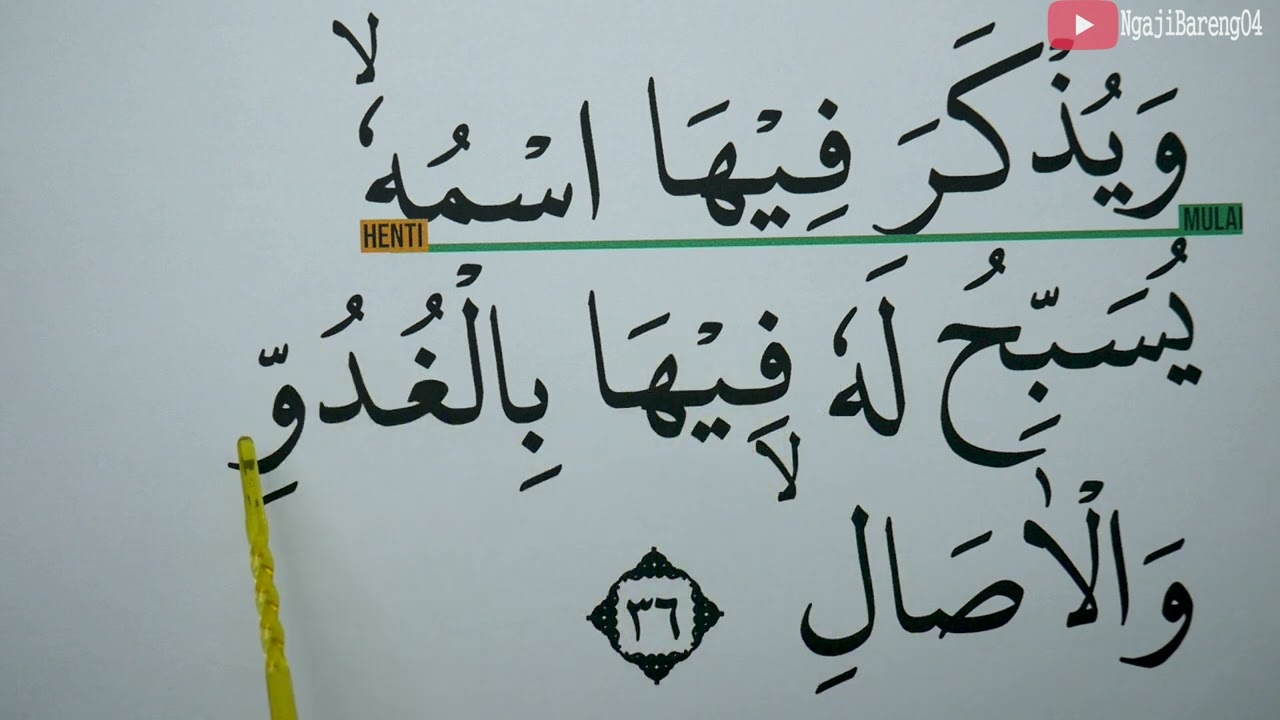 NgajiBareng04
وَيُذْكَرَ فِيْهَا اسْمُهٗ ۙ
HENTI MULAI
يُسَبِّحُ لَهٗ فِيْهَا بِالْغُدُوِّ
وَالْاٰصَالِ ۙ ٣٦